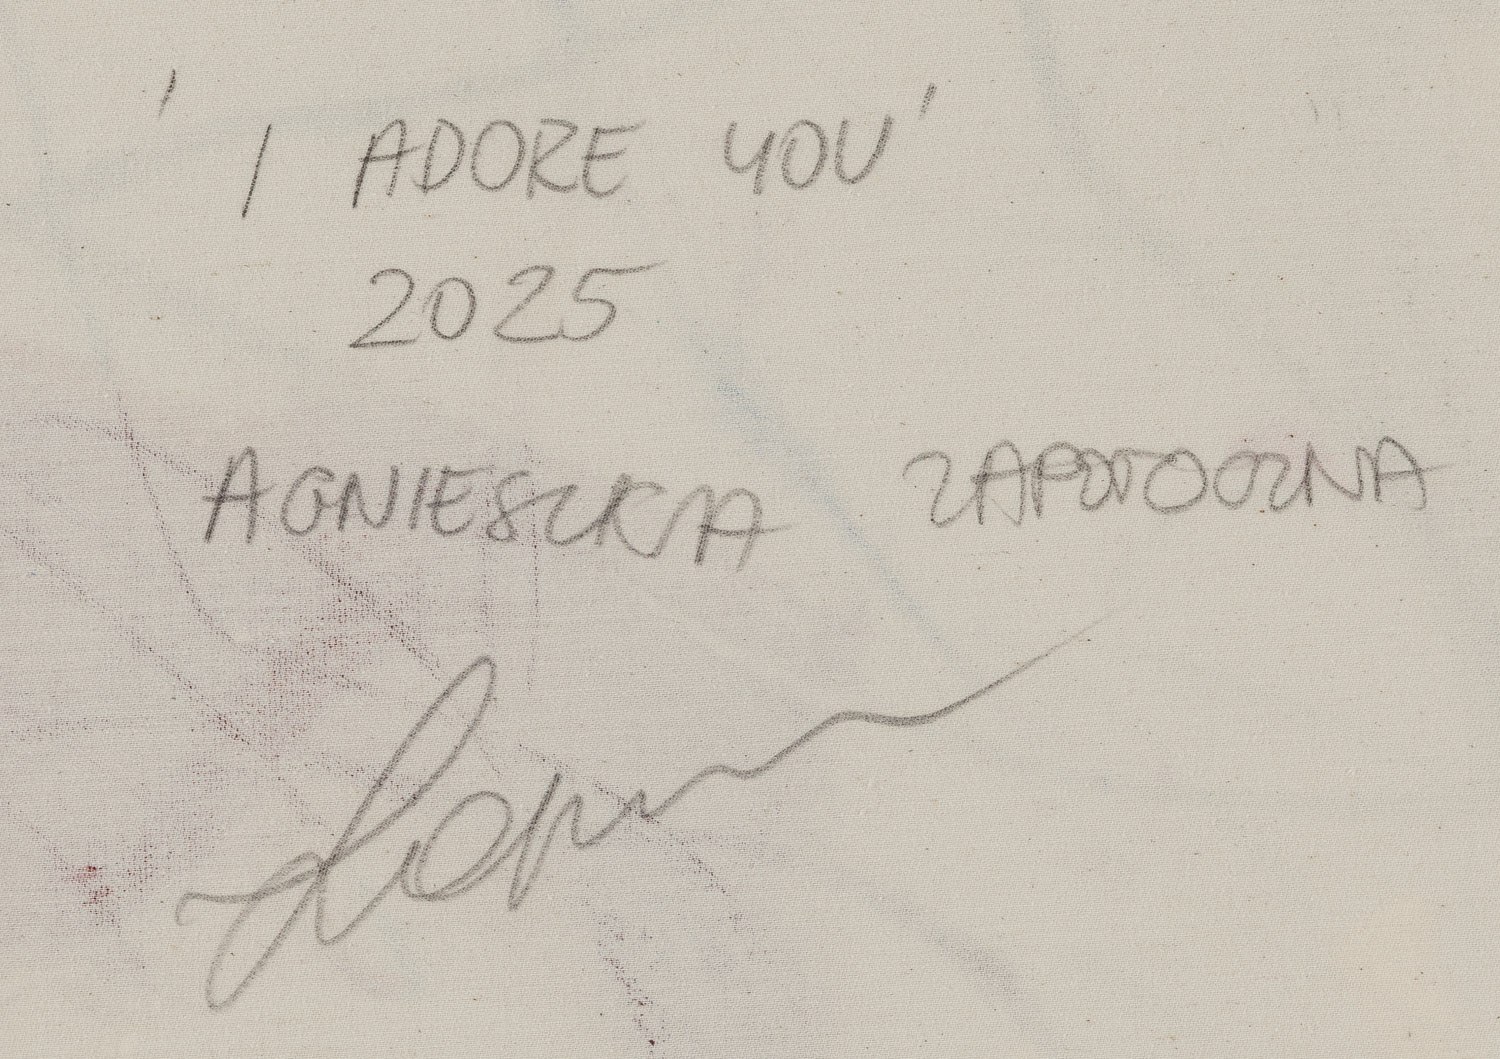 'I ADORE YOU'
2025
AGNIESZKA ZAPOTOCZNA